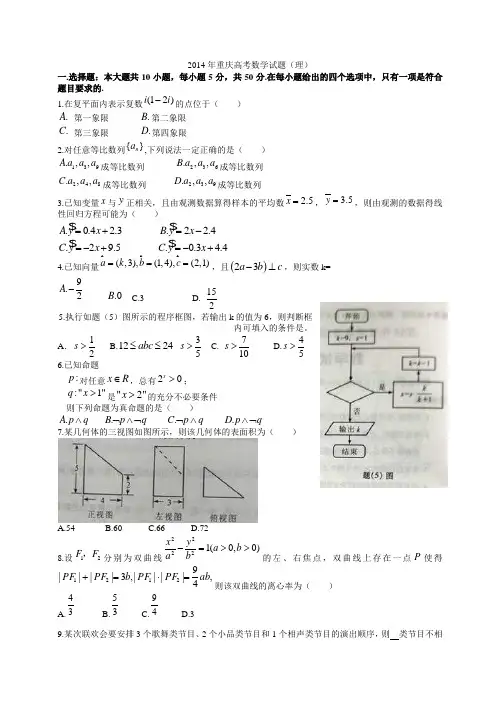 2014年重庆高考数学试题（理）
一.选择题：本大题共10小题，每小题5分，共50分.在每小题给出的四个选项中，只有一项是符合
题目要求的.
1.在复平面内表示复数 i(1−2i) 的点位于（ ）
A. 第一象限 B.第二象限
C. 第三象限 D.第四象限
2.对任意等比数列{aₙ},下列说法一定正确的是（ ）
A.a₁,a₃,a₉成等比数列 B.a₂,a₃,a₆成等比数列
C.a₂,a₄,a₈成等比数列 D.a₃,a₆,a₉成等比数列
3.已知变量 x 与 y 正相关，且由观测数据算得样本的平均数 x̄=2.5，ȳ=3.5，则由观测的数据得线
性回归方程可能为（ ）
A.y=0.4x+2.3 B.y=2x−2.4
C.y=−2x+9.5 C.y=−0.3x+4.4
4.已知向量 a=(k,3),b=(1,4),c=(2,1)，且(2a−3b)⊥c，则实数 k=
A.−9/2 B.0 C.3 D. 15/2
5.执行如题（5）图所示的程序框图，若输出 k 的值为 6，则判断框
内可填入的条件是。
A. s>1/2 B.12≤abc≤24 s>3/5 C. s>7/10 D.s>4/5
6.已知命题
p:对任意 x∈R，总有 2ˣ>0；
q:"x>1"是"x>2"的充分不必要条件
则下列命题为真命题的是（ ）
A.p∧q B.¬p∧¬q C.¬p∧q D.p∧¬q
7.某几何体的三视图如图所示，则该几何体的表面积为（ ）
开始
k=9，s=1
是
否
k=k−1
输出 k
结束
题(5)图
5
2
4
3
正视图 左视图 俯视图
A.54 B.60 C.66 D.72
8.设 F₁，F₂ 分别为双曲线 x²/a²−y²/b²=1(a>0,b>0) 的左、右焦点，双曲线上存在一点 P 使得
|PF₁|+|PF₂|=3b,|PF₁|·|PF₂|=9/4 ab,则该双曲线的离心率为（ ）
A.4/3 B.5/3 C.9/4 D.3
9.某次联欢会要安排 3 个歌舞类节目、2 个小品类节目和 1 个相声类节目的演出顺序，则 类节目不相